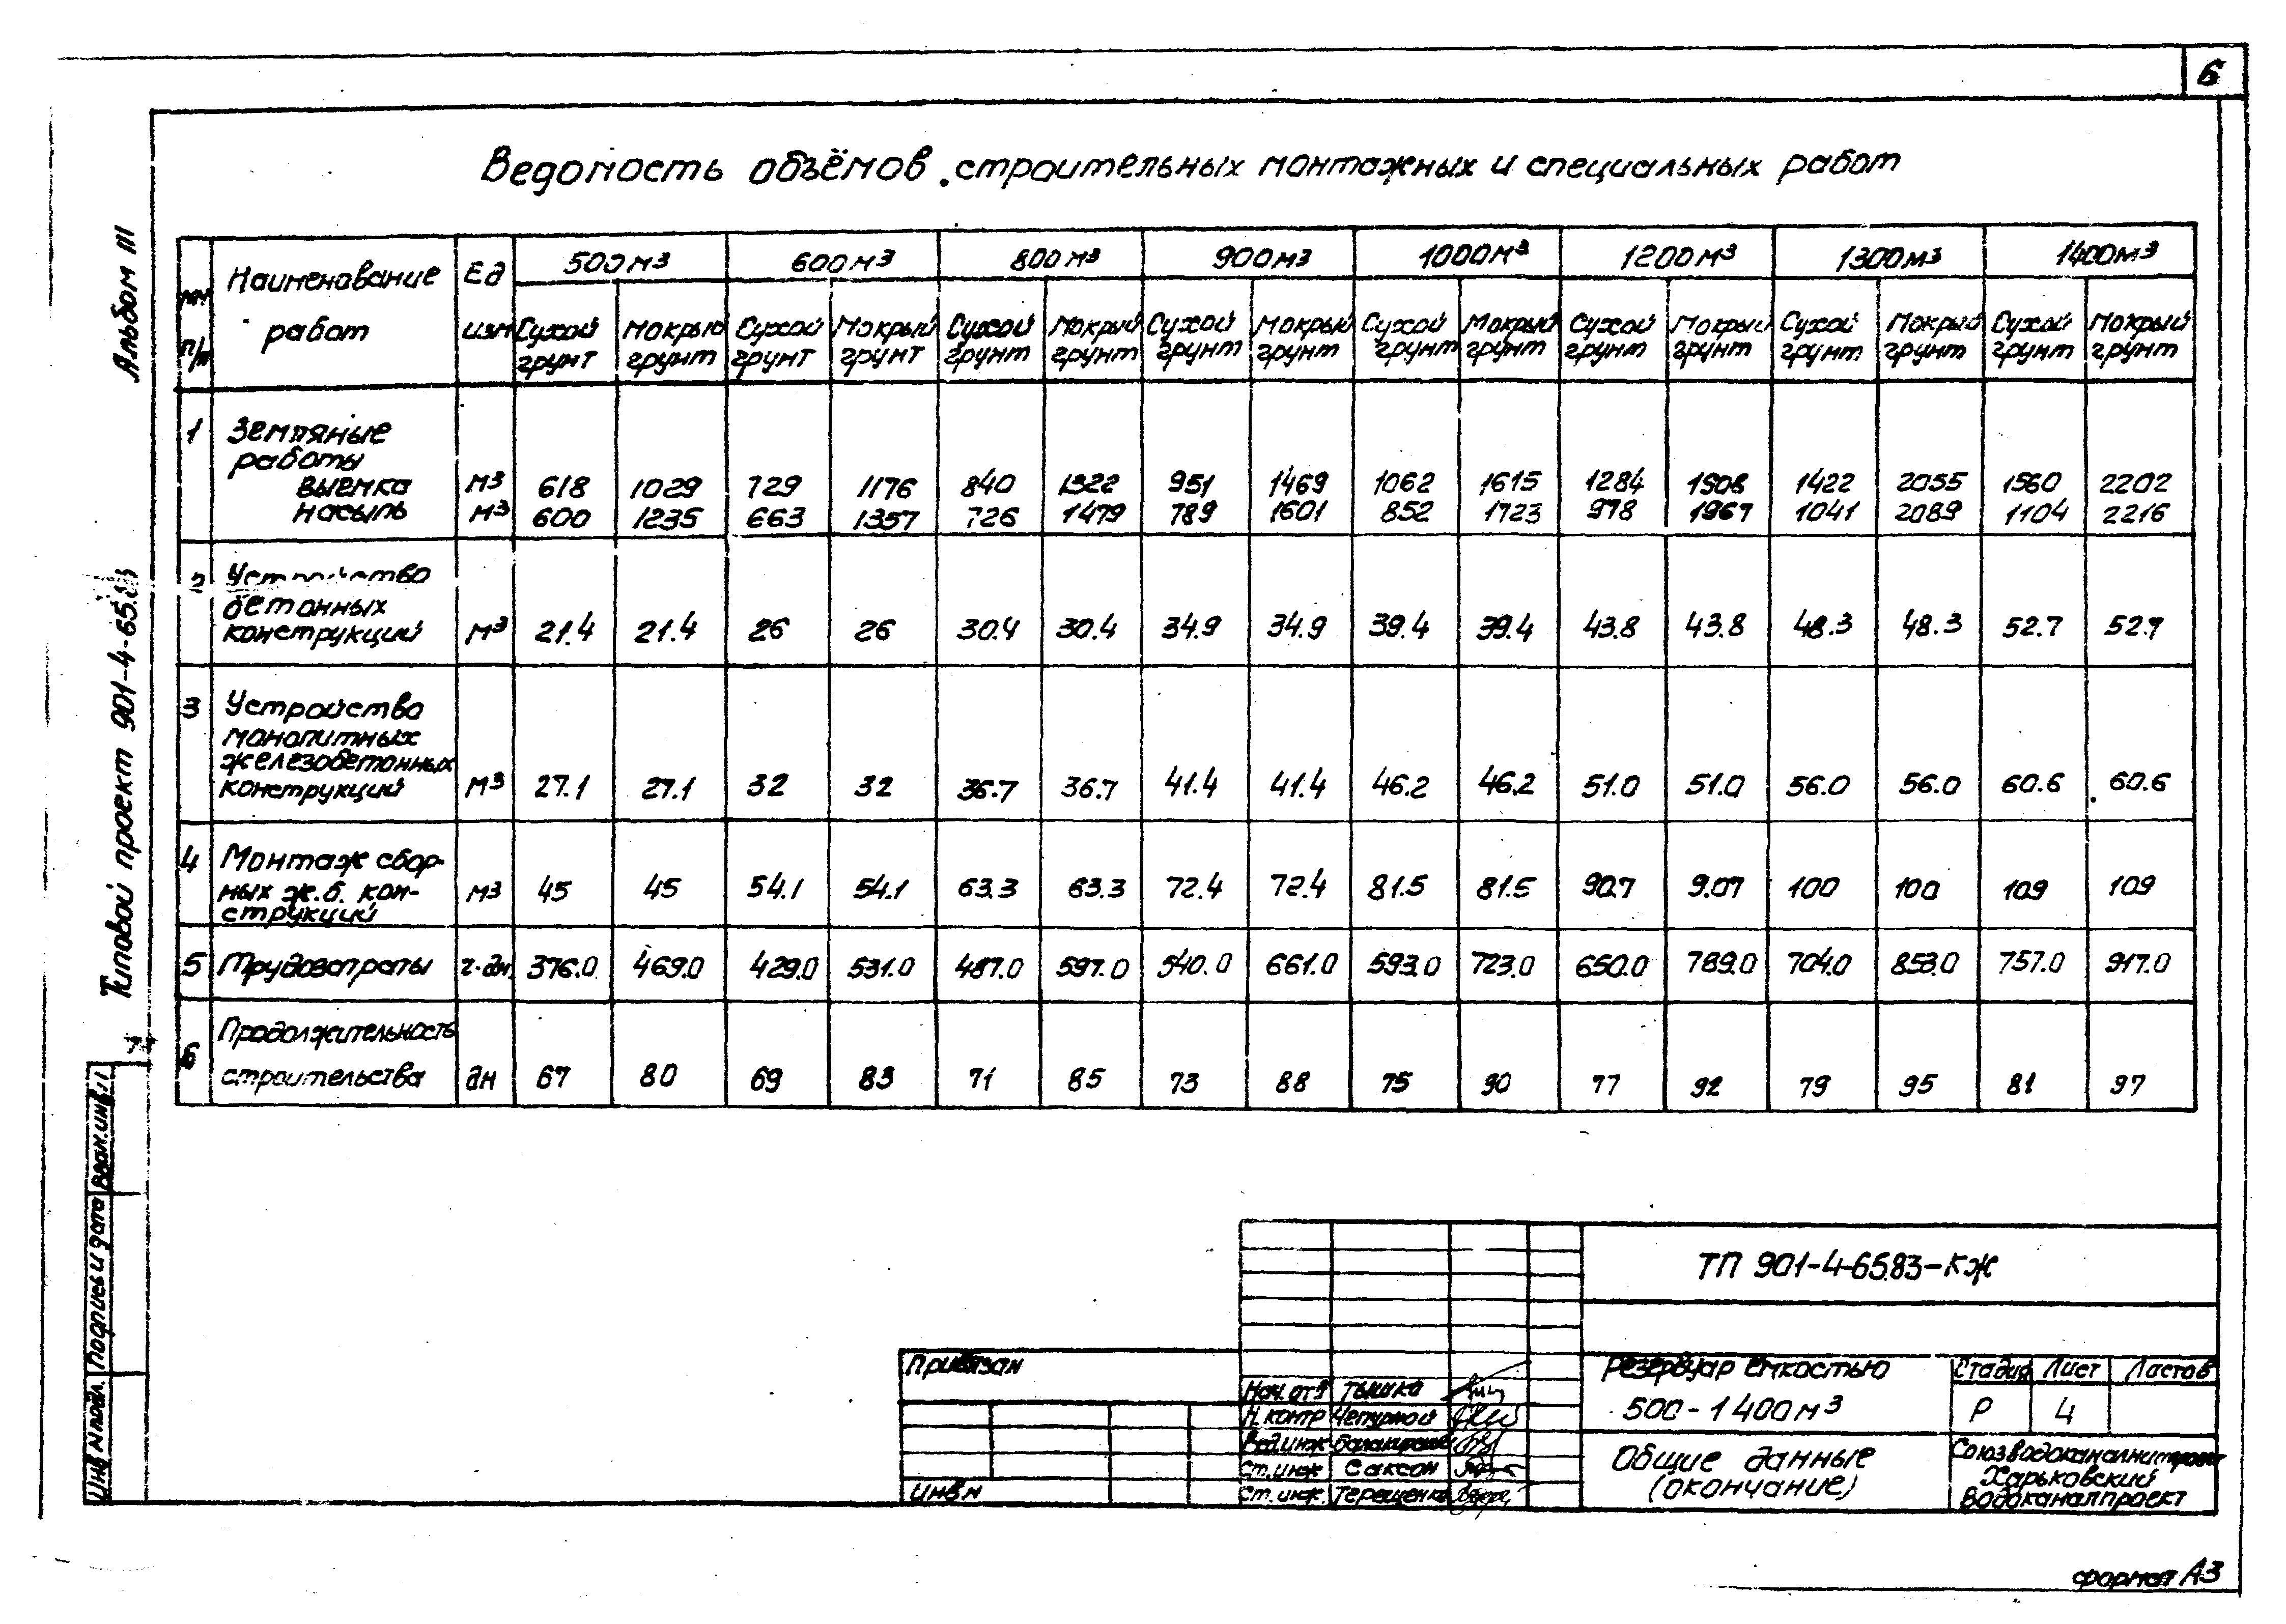 6
Ведомость объёмов строительных монтажных и специальных работ
Альбом III
Типовой проект 901-4-65.83
п/п Наименование работ Ед изм 500м³ 600м³ 800м³ 900м³ 1000м³ 1200м³ 1300м³ 1400м³
Сухой грунт Мокрый грунт Сухой грунт Мокрый грунт Сухой грунт Мокрый грунт Сухой грунт Мокрый грунт Сухой грунт Мокрый грунт Сухой грунт Мокрый грунт Сухой грунт Мокрый грунт Сухой грунт Мокрый грунт
1 Земляные
работы
выемка м³ 618 1029 729 1176 840 1322 951 1469 1062 1615 1284 1908 1422 2055 1560 2202
насыпь м³ 600 1235 663 1357 726 1479 789 1601 852 1723 978 1967 1041 2089 1104 2216
2 Устройство
бетонных
конструкций м³ 21.4 21.4 26 26 30.4 30.4 34.9 34.9 39.4 39.4 43.8 43.8 48.3 48.3 52.7 52.7
3 Устройство
монолитных
железобетонных
конструкций м³ 27.1 27.1 32 32 36.7 36.7 41.4 41.4 46.2 46.2 51.0 51.0 56.0 56.0 60.6 60.6
4 Монтаж сбор-
ных ж.б. кон- м³ 45 45 54.1 54.1 63.3 63.3 72.4 72.4 81.5 81.5 90.7 9.07 100 100 109 109
струкций
5 Трудозатраты ч.дн. 376.0 469.0 429.0 531.0 487.0 597.0 540.0 661.0 593.0 723.0 650.0 789.0 704.0 853.0 757.0 917.0
6 Продолжительность
строительства дн 67 80 69 83 71 85 73 88 75 90 77 92 79 95 81 97
Инв N подл. Подпись и дата Взам.инв.
ТП 901-4-65.83-КЖ
Привязан
Инв N
Нач.отд Тышко
Н.контр Чепурной
Вед.инж
Ст.инж Саксон
Ст.инж. Терещенко
Резервуар емкостью
500-1400м³
Стадия Лист Листов
Р 4
Общие данные
(окончание)
Союзводоканалниипроект
Харьковский
Водоканалпроект
формат А3